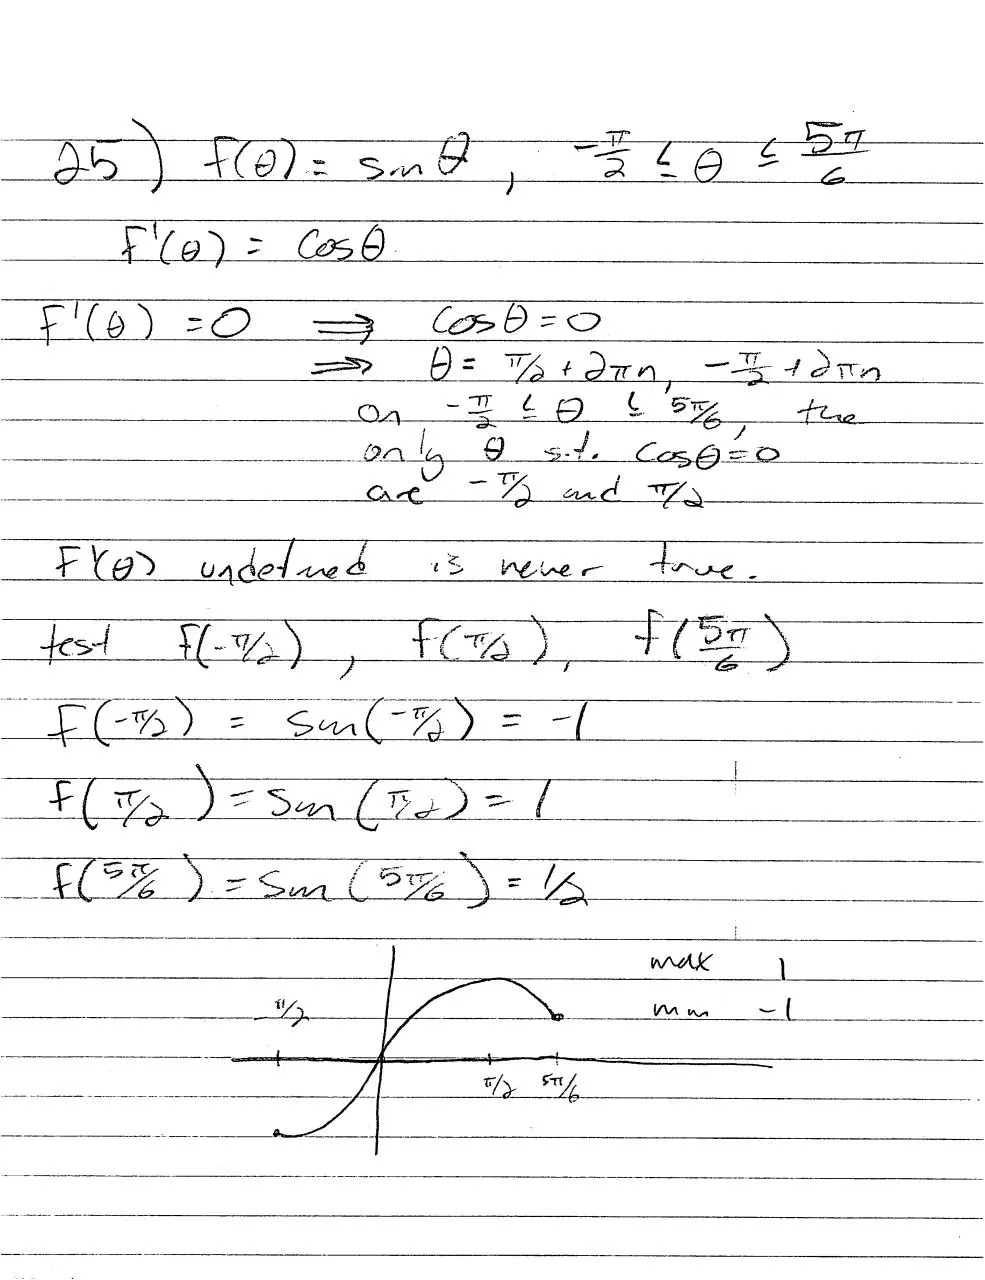 25) f(θ) = sin θ, -π/2 ≤ θ ≤ 5π/6
F'(θ) = cos θ
F'(θ) = 0 ⟹ cos θ = 0
⟹ θ = π/2 + 2πn, -π/2 + 2πn
on -π/2 ≤ θ ≤ 5π/6, the
only θ s.t. cos θ = 0
are -π/2 and π/2
F'(θ) undefined is never true.
test f(-π/2), f(π/2), f(5π/6)
F(-π/2) = sin(-π/2) = -1
f(π/2) = sin(π/2) = 1
f(5π/6) = sin(5π/6) = 1/2
max 1
min -1
-π/2
π/2 5π/6